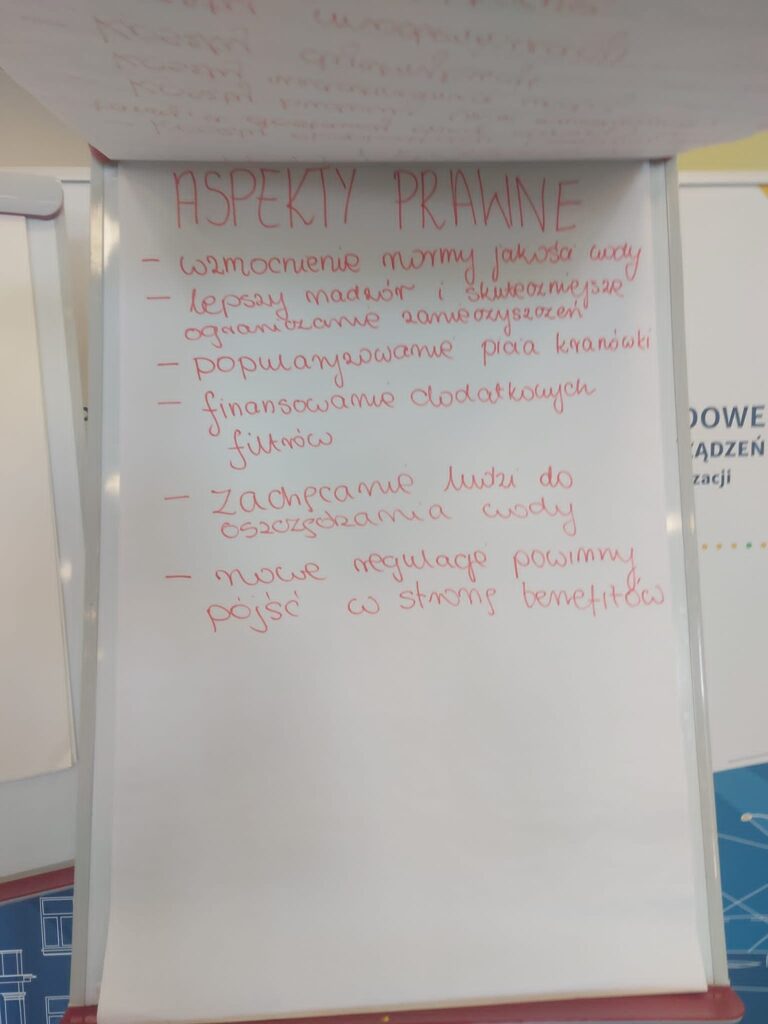 ASPEKTY PRAWNE
- wzmocnienie normy jakości wody
- lepszy nadzór i skuteczniejsze
ograniczanie zanieczyszczeń
- popularyzowanie picia kranówki
- finansowanie dodatkowych
filtrów
- zachęcanie ludzi do
oszczędzania wody
- nowe regulacje powinny
pójść w stronę benefitów
DOWE
ĄDZEŃ
zacji